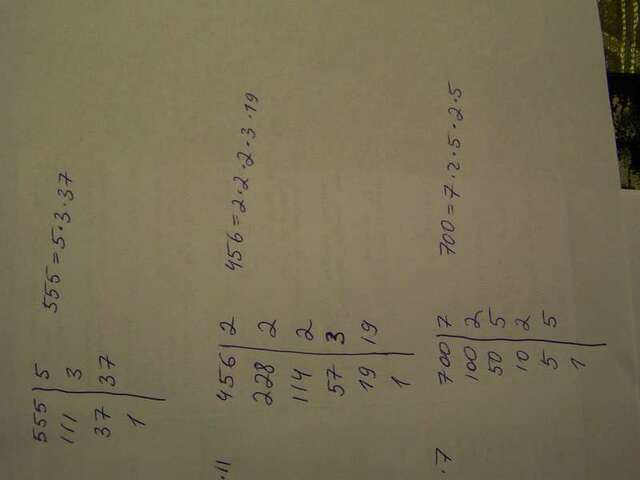 555 | 5 555 = 5 · 3 · 37
111 | 3
37 | 37
1 |
·11
456 | 2 456 = 2 · 2 · 2 · 3 · 19
228 | 2
114 | 2
57 | 3
19 | 19
1 |
·7
700 | 7 700 = 7 · 2 · 5 · 2 · 5
100 | 2
50 | 5
10 | 2
5 | 5
1 |